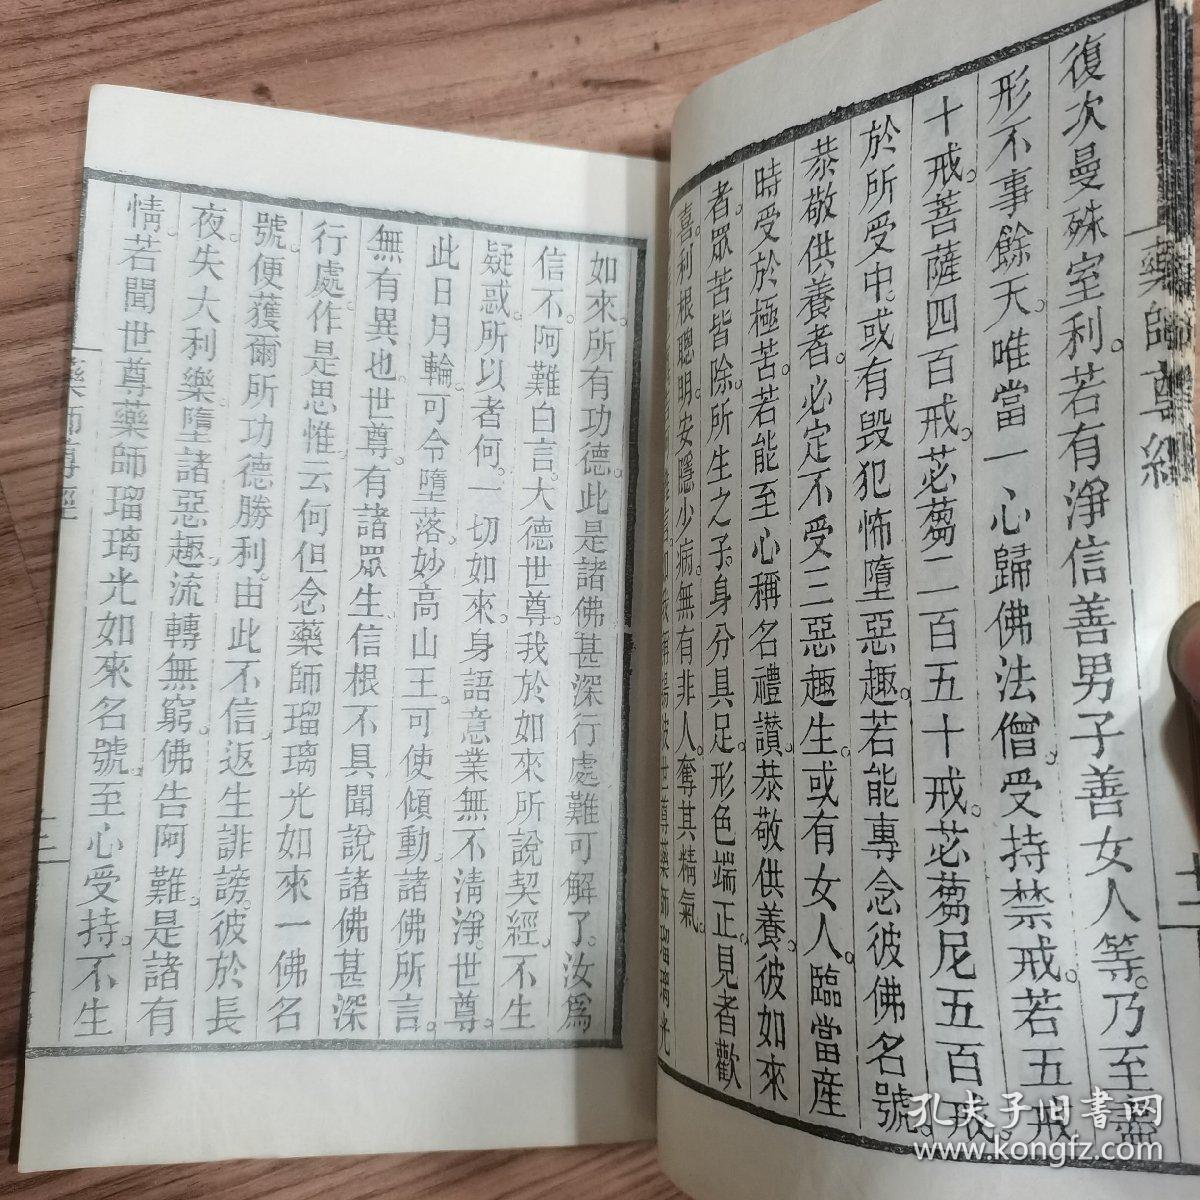 藥師尊經
復次曼殊室利。若有淨信善男子善女人等。乃至盡
形不事餘天。唯當一心歸佛法僧。受持禁戒。若五戒
十戒。菩薩四百戒。苾蒭二百五十戒。苾蒭尼五百戒。
於所受中。或有毀犯。怖墮惡趣。若能專念彼佛名號。
恭敬供養者。必定不受三惡趣生。或有女人。臨當産
時。受於極苦。若能至心稱名禮讚。恭敬供養。彼如來
者。眾苦皆除。所生之子。身分具足。形色端正。見者歡
喜。利根聰明。安隱少病。無有非人。奪其精氣。
彼世尊藥師瑠璃光
如來。所有功德。此是諸佛甚深行處。難可解了。汝爲
信不。阿難白言。大德世尊。我於如來所說契經。不生
疑惑。所以者何。一切如來。身語意業。無不清淨。世尊。
此日月輪。可令墮落。妙高山王。可使傾動。諸佛所言。
無有異也。世尊。有諸眾生。信根不具。聞說諸佛甚深
行處。作是思惟。云何但念藥師瑠璃光如來一佛名
號。便獲爾所功德勝利。由此不信。返生誹謗。彼於長
夜。失大利樂。墮諸惡趣。流轉無窮。佛告阿難。是諸有
情。若聞世尊藥師瑠璃光如來名號。至心受持。不生
藥師尊經
十三
孔夫子旧书网
www.kongfz.com